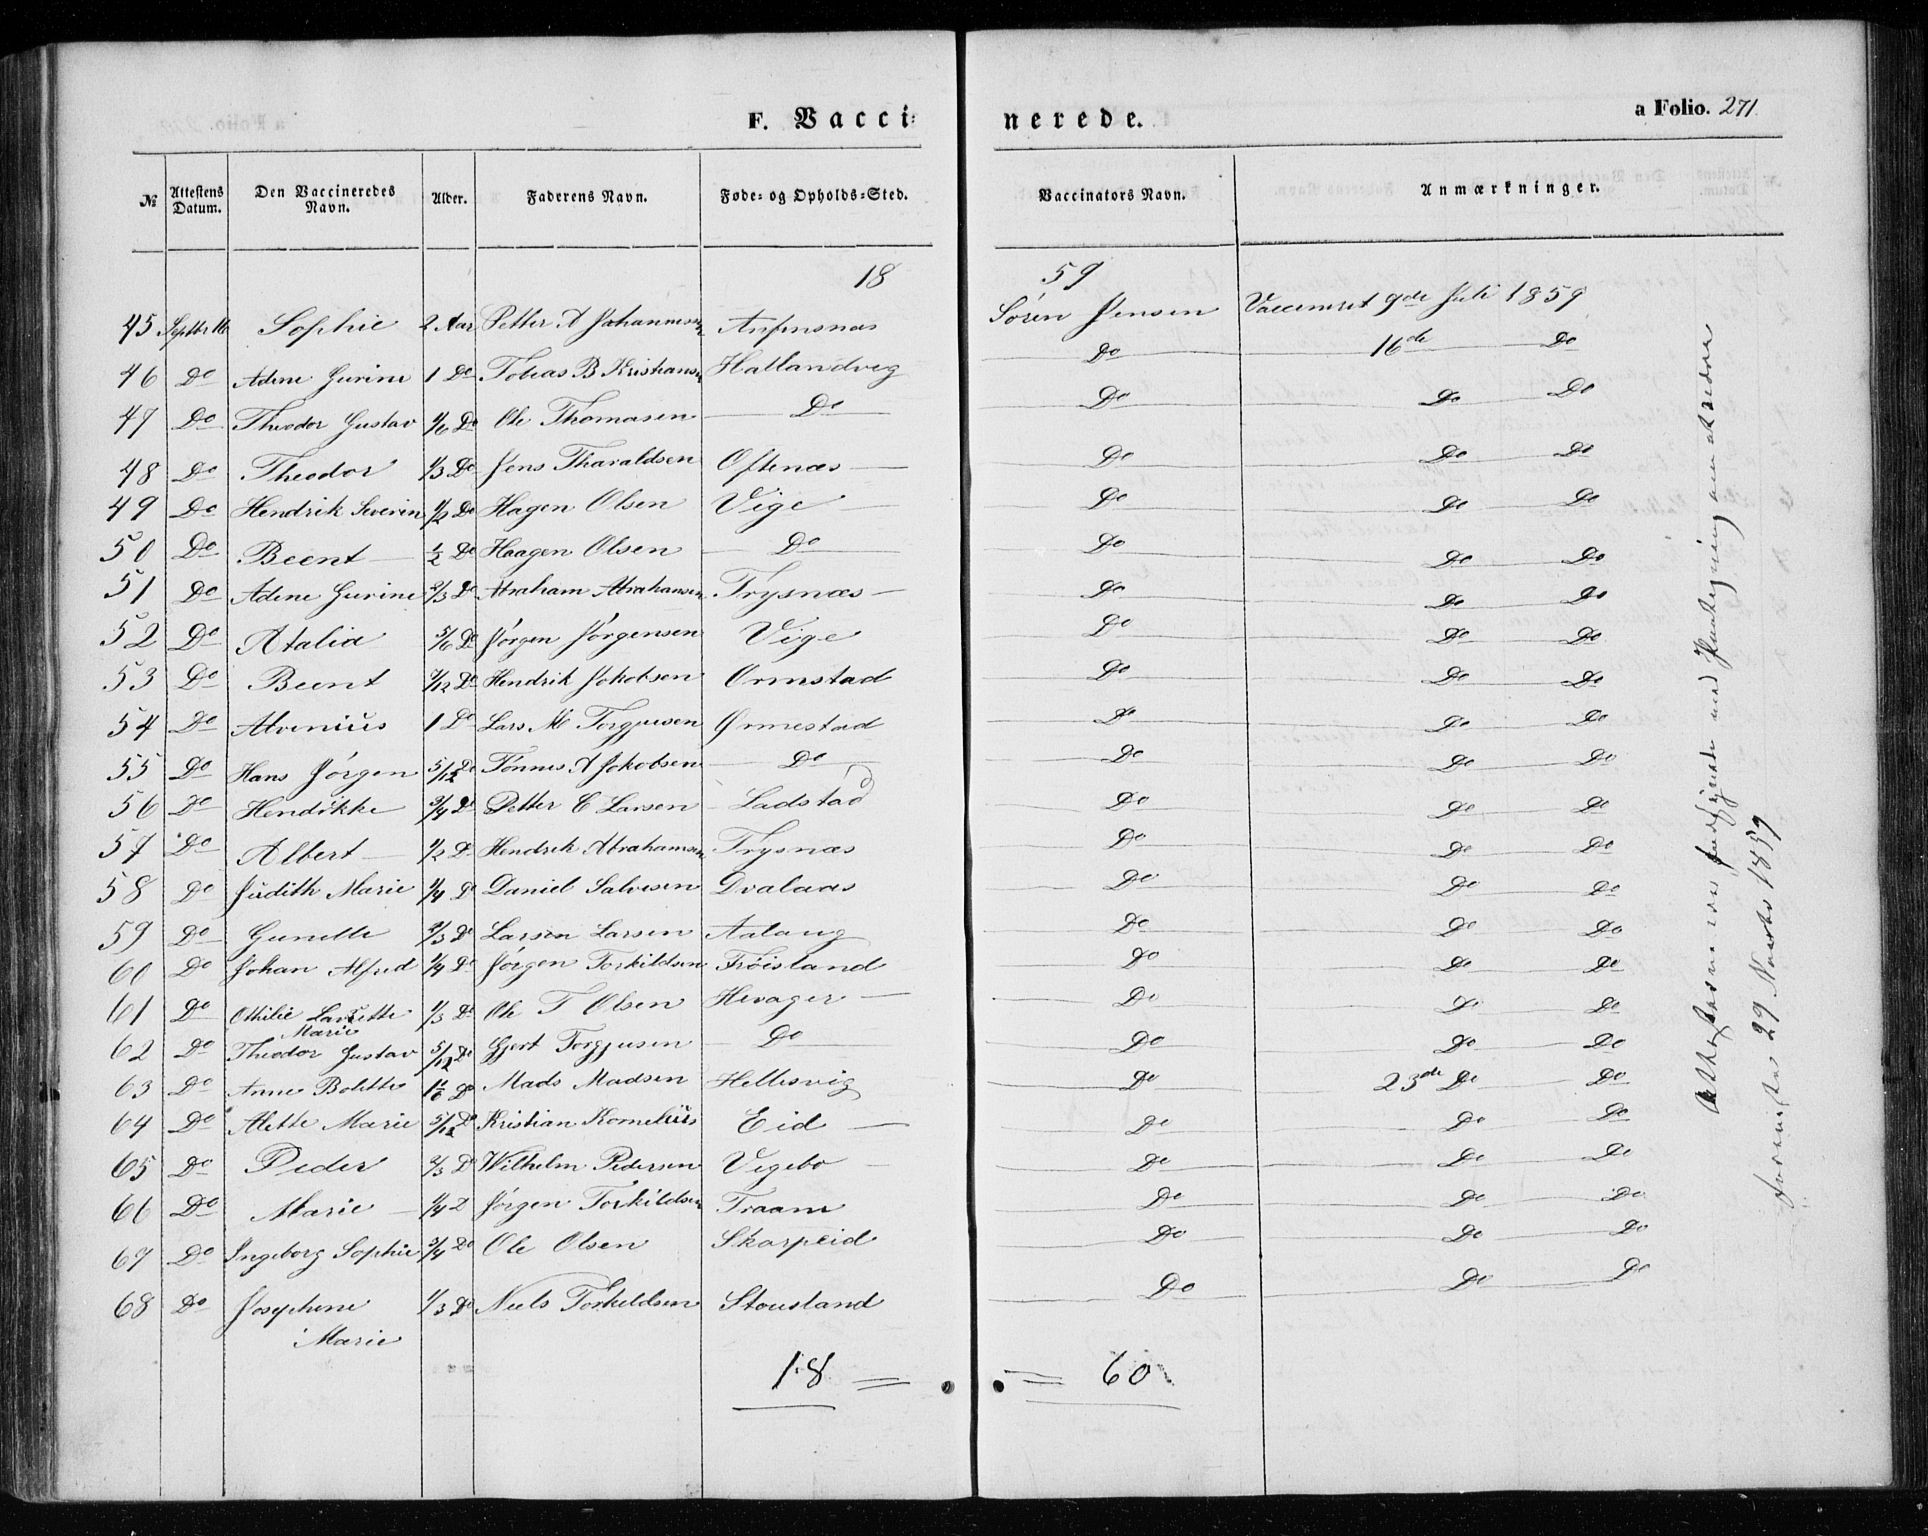 F. Vacci= nerede.
a Folio. 271
№ Attestens Datum. Den Vaccineredes Navn. Alder. Faderens Navn. Føde= og Opholds=Sted. Vaccinators Navn. Anmærkninger.
18 59
45 Septbr 16 Sophie 2 Aar Petter A Johannesen Søren Jensen Vaccineret 9de Juli 1859
46 Do Adene Gurine 1 Do Tobias B Kristiansen Hallandvig Do 16de Do
47 Do Theodor Gustav 1/6 Do Ole Thomasen Do Do Do Do
48 Do Theodor 1/3 Do Jens Tharaldsen Oftenæs Do Do Do
49 Do Hendrik Severin 1/2 Do Hagen Olsen Vige Do Do Do
50 Do Beent 1/2 Do Haagen Olsen Do Do Do Do
51 Do Adene Gurine 2/3 Do Abraham Abrahamsen Trysnæs Do Do Do
52 Do Atalia 5/6 Do Jørgen Jørgensen Vige Do Do Do
53 Do Beent 7/12 Do Hendrik Jokobsen Ormstad Do Do Do
54 Do Alvenius 1 Do Lars M Torgjusen Ormestad Do Do Do
55 Do Hans Jørgen 5/12 Do Tønnes A Jokobsen Do Do Do Do
56 Do Hendikke 3/4 Do Petter E Larsen Ladstad Do Do Do
57 Do Albert 1/2 Do Hendrik Abrahamsen Trysnæs Do Do Do
58 Do Judith Marie 1/4 Do Daniel Salvesen Dvalaas Do Do Do
59 Do Gunelle 2/3 Do Larsen Larsen Aalaug Do Do Do
60 Do Johan Alfred 1/4 Do Jørgen Torkildsen Frøisland Do Do Do
61 Do Othilie Lavette Marie 1/3 Do Ole T Olsen Hevager Do Do Do
62 Do Theodor Gustav 5/12 Do Gjert Torgjusen Do Do Do Do
63 Do Anne Bolette 1 1/6 Do Mads Madsen Hellesvig Do 23de Do Do
64 Do Alette Marie 5/12 Do Kristian Kornelius Eid Do Do Do
65 Do Peder 2/3 D Wilhelm Pedersen Vigebo Do Do Do
66 Do Marie 1/4 D Jørgen Torkildsen Traam Do Do Do
67 Do Ingeborg Sophie 3/4 Do Ole Olsen Skarpeid Do Do Do
68 Do Josephine Marie 1/3 Do Niels Torkeldsen Stousland Do Do Do
18 = = 60
29 Novbr 1859